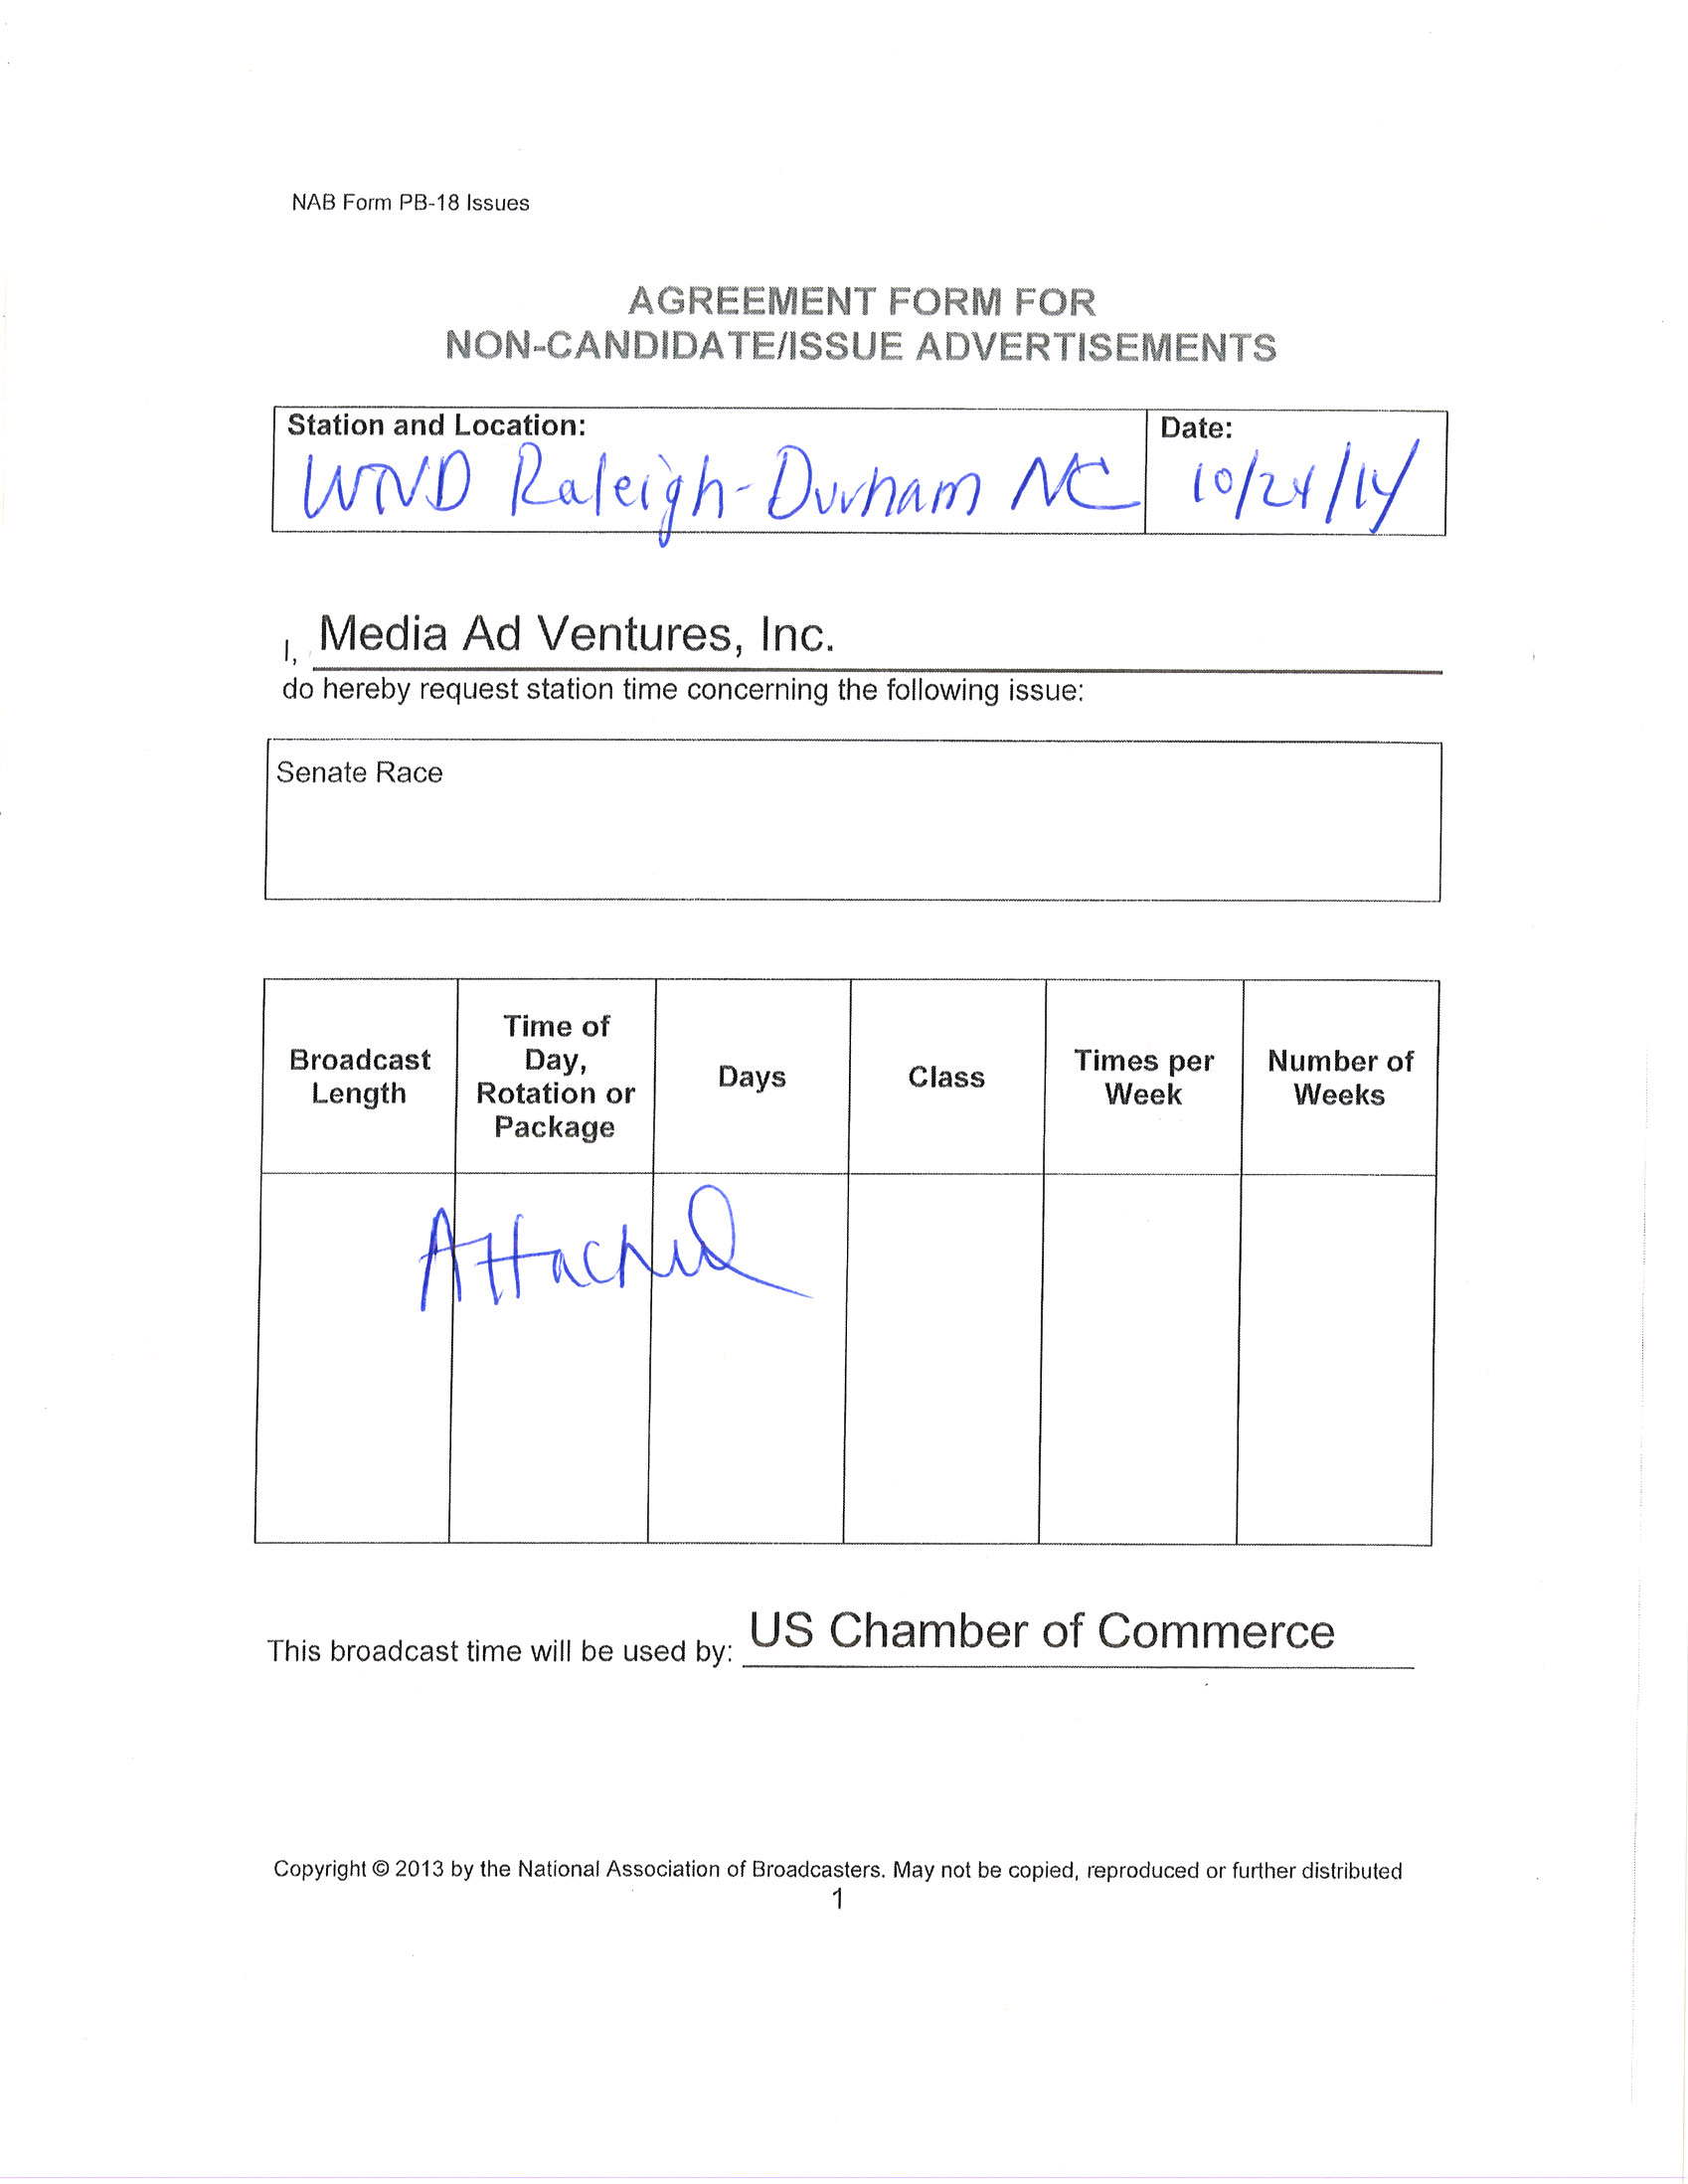 NAB Form PB-18 Issues
AGREEMENT FORM FOR
NON-CANDIDATE/ISSUE ADVERTISEMENTS
Station and Location:
Date:
Raleigh-Durham NC
10/24/14
I, Media Ad Ventures, Inc.
do hereby request station time concerning the following issue:
Senate Race
Broadcast Length
Time of Day, Rotation or Package
Days
Class
Times per Week
Number of Weeks
Attached
This broadcast time will be used by: US Chamber of Commerce
Copyright © 2013 by the National Association of Broadcasters. May not be copied, reproduced or further distributed
1